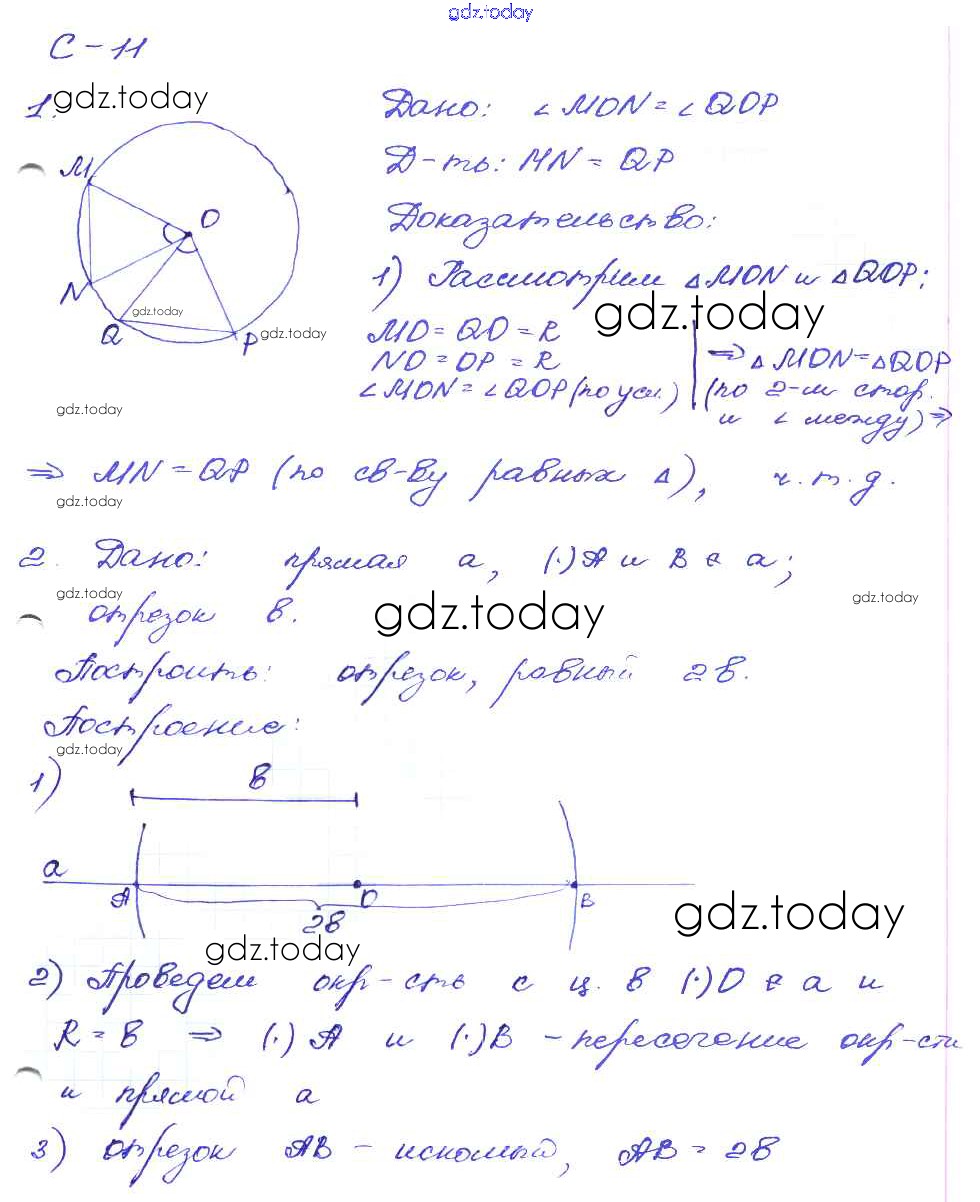 gdz.today
С-11
1. gdz.today
Дано: ∠MON = ∠QOP
Д-ть: MN = QP
Доказательство:
M
O
N
Q
P
gdz.today
gdz.today
1) Рассмотрим △MON и △QOP:
gdz.today
MO = QO = R
NO = OP = R
∠MON = ∠QOP (по усл.)
⇒ △MON = △QOP
(по 2-м стор.
и ∠ между) ⇒
gdz.today
⇒ MN = QP (по св-ву равных △), ч.т.д.
gdz.today
2. Дано: прямая a, (·)A и B ∈ a;
gdz.today
gdz.today
отрезок в.
gdz.today
Построить: отрезок, равный 2в.
Построение:
gdz.today
1)
в
a
A
O
B
2в
gdz.today
gdz.today
2) Проведем окр-сть с ц. в (·)O ∈ a и
R = в ⇒ (·) A и (·)B - пересечение окр-сти
и прямой a
3) отрезок AB - искомый, AB = 2в